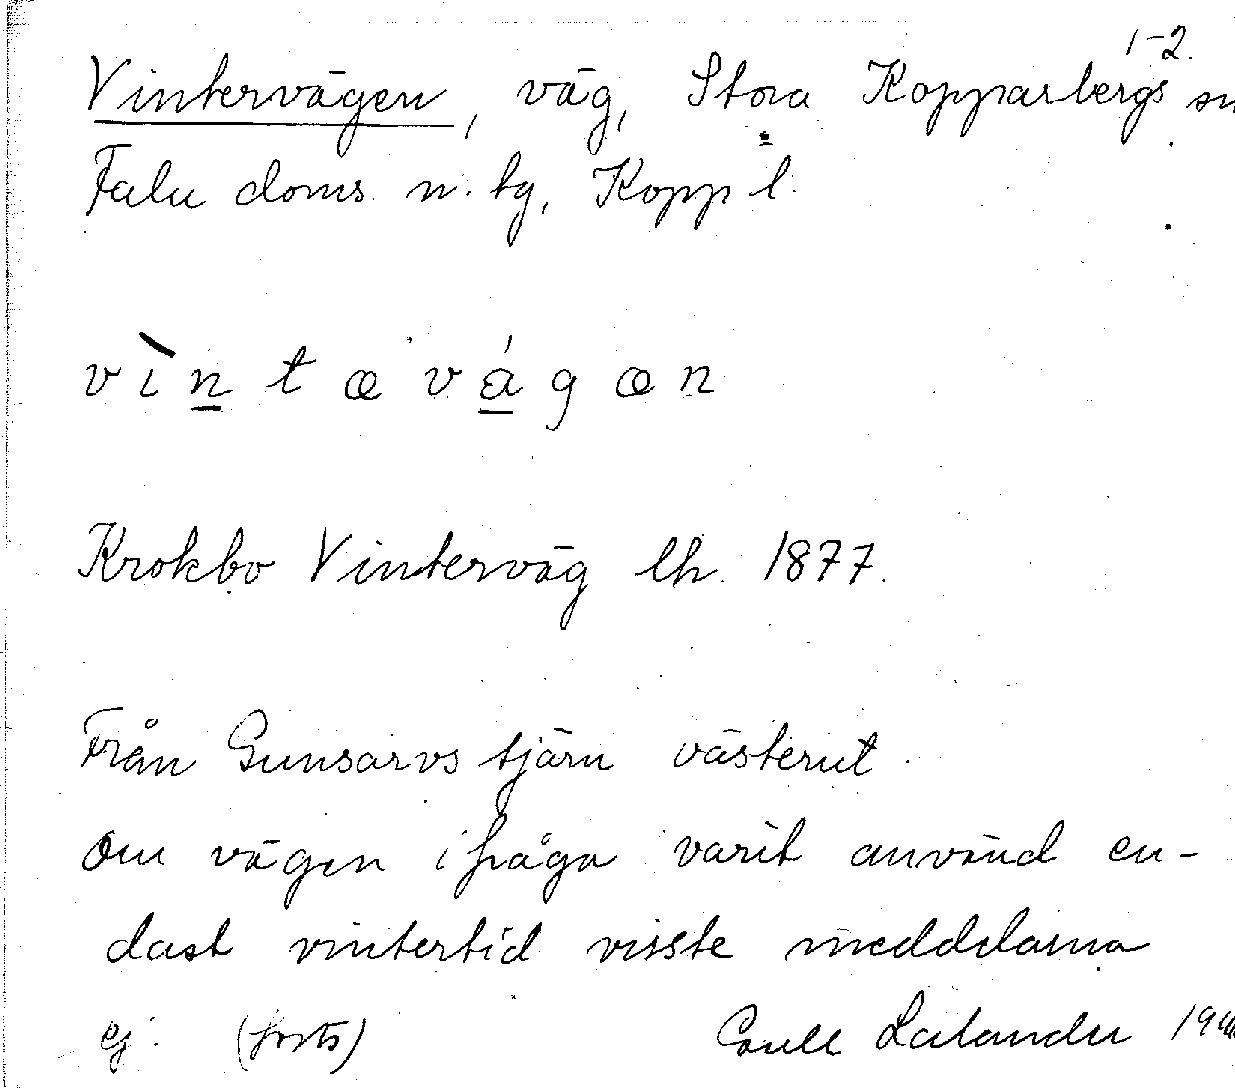 1-2.
Vintervägen, väg, Stora Kopparbergs sn
Falu doms. n. tg, Kopp l.
vìntævágæn
Krokbo Vinterväg lh. 1877.
Från Gunsarvs tjärn västerut.
Om vägen ifråga varit använd en-
dast vintertid visste meddelarna
ej. (forts)
Lalander